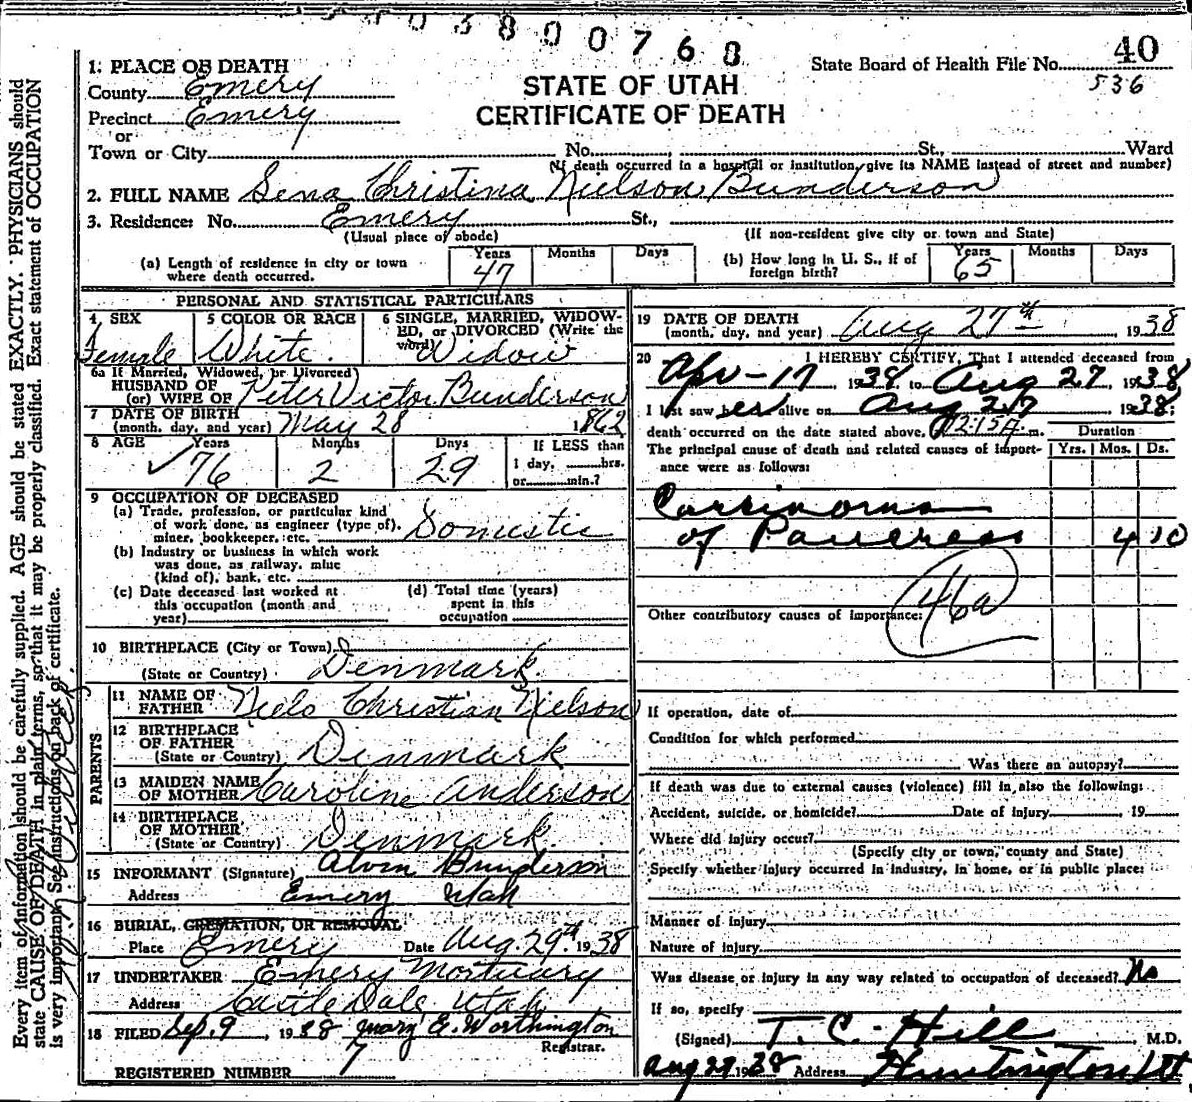 00380076 8
State Board of Health File No. 40
536
STATE OF UTAH
CERTIFICATE OF DEATH
1. PLACE OF DEATH
County Emery
Precinct Emery
or
Town or City No. St., Ward
(If death occurred in a hospital or institution, give its NAME instead of street and number)
2. FULL NAME Sena Christina Nielson Bunderson
3. Residence: No. Emery St.,
(Usual place of abode) (If non-resident give city or town and State)
(a) Length of residence in city or town where death occurred. Years 47 Months Days
(b) How long in U. S., if of foreign birth? Years 65 Months Days
PERSONAL AND STATISTICAL PARTICULARS
4 SEX Female
5 COLOR OR RACE White.
6 SINGLE, MARRIED, WIDOWED, or DIVORCED (Write the word) Widow
6a If Married, Widowed, or Divorced
HUSBAND OF
(or) WIFE OF Peter Victor Bunderson
7 DATE OF BIRTH
(month, day, and year) May 28 1862
8 AGE Years 76 Months 2 Days 29
If LESS than
1 day, hrs.
or min.?
9 OCCUPATION OF DECEASED
(a) Trade, profession, or particular kind
of work done, as engineer (type of),
miner, bookkeeper, etc. Domestic
(b) Industry or business in which work
was done, as railway, mine
(kind of), bank, etc.
(c) Date deceased last worked at
this occupation (month and
year)
(d) Total time (years)
spent in this
occupation
10 BIRTHPLACE (City or Town)
(State or Country) Denmark
PARENTS
11 NAME OF
FATHER Niels Christian Nielson
12 BIRTHPLACE
OF FATHER
(State or Country) Denmark
13 MAIDEN NAME
OF MOTHER Caroline Anderson
14 BIRTHPLACE
OF MOTHER
(State or Country) Denmark.
15 INFORMANT (Signature) Alvin Bunderson
Address Emery Utah
16 BURIAL, CREMATION, OR REMOVAL
Place Emery Date Aug. 29th. 1938
17 UNDERTAKER Emery Mortuary
Address Castle Dale, Utah
18 FILED Sep. 9, 1938 Mary E. Worthington
Registrar.
REGISTERED NUMBER 7
19 DATE OF DEATH
(month, day, and year) Aug 27th 1938
20 I HEREBY CERTIFY, That I attended deceased from
Apr-17, 1938, to Aug 27, 1938,
I last saw her alive on Aug 27, 1938;
death occurred on the date stated above, 12:15 A. m.
The principal cause of death and related causes of importance were as follows:
Duration
Yrs. Mos. Ds.
Carsinoma
of Pancreas 4 10
46a
Other contributory causes of importance:
If operation, date of
Condition for which performed
Was there an autopsy?
If death was due to external causes (violence) fill in also the following:
Accident, suicide, or homicide? Date of injury , 19
Where did injury occur?
(Specify city or town, county and State)
Specify whether injury occurred in industry, in home, or in public place:
Manner of injury
Nature of injury
Was disease or injury in any way related to occupation of deceased? No
If so, specify
(Signed) T. C. Hill, M.D.
Aug 29 1938 Address Huntington Ut
Every item of information should be carefully supplied. AGE should be stated EXACTLY. PHYSICIANS should
state CAUSE OF DEATH in plain terms, so that it may be properly classified. Exact statement of OCCUPATION
is very important. See instructions on back of certificate.